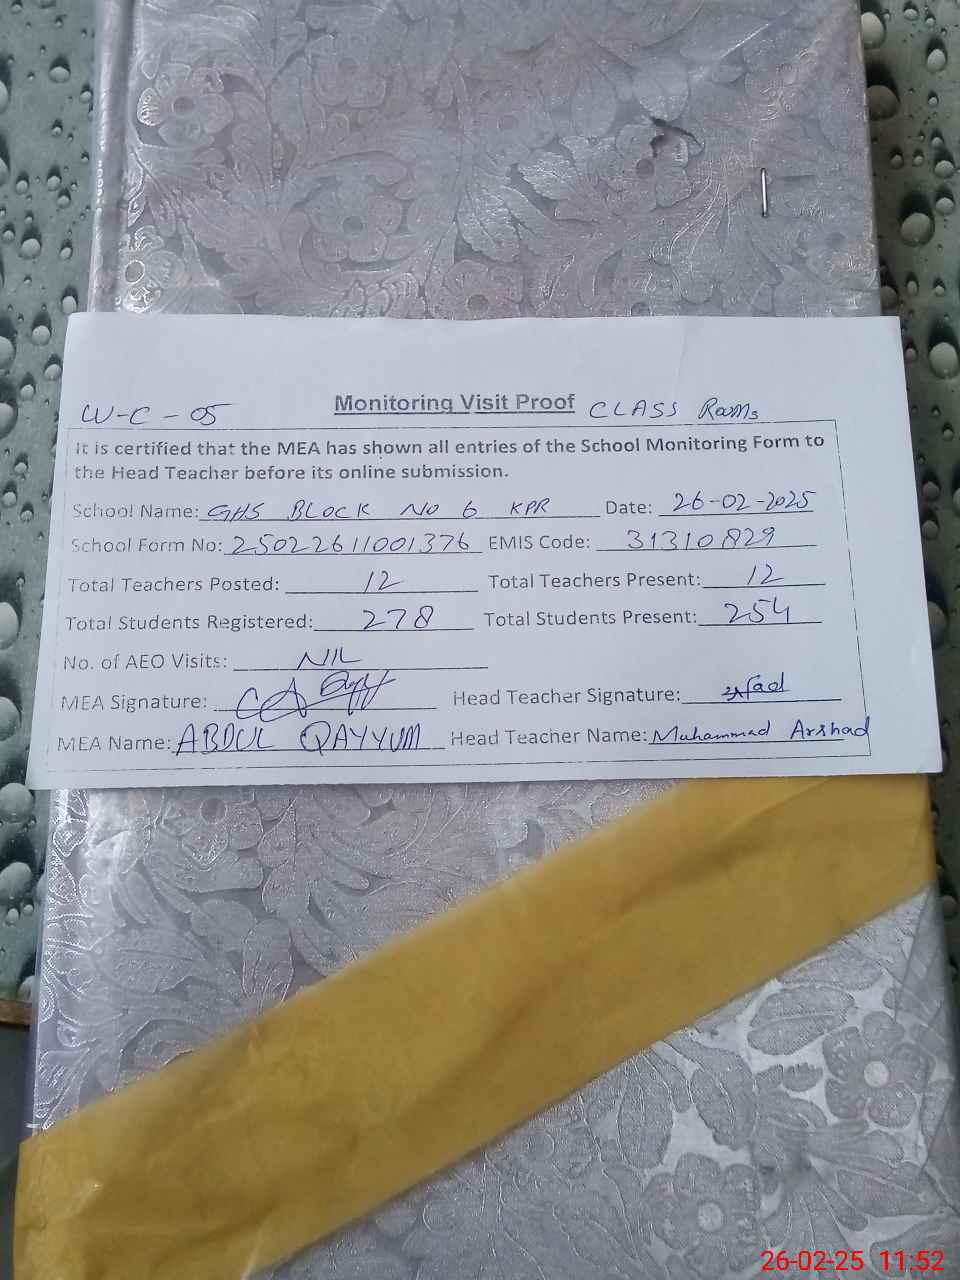 W-C-05 Monitoring Visit Proof CLASS Rooms
It is certified that the MEA has shown all entries of the School Monitoring Form to
the Head Teacher before its online submission.
School Name: GHS BLOCK NO 6 KPR Date: 26-02-2025
School Form No: 25022611001376 EMIS Code: 31310829
Total Teachers Posted: 12 Total Teachers Present: 12
Total Students Registered: 278 Total Students Present: 254
No. of AEO Visits: NIL
MEA Signature: Head Teacher Signature:
MEA Name: ABDUL QAYYUM Head Teacher Name: Muhammad Arshad
26-02-25 11:52